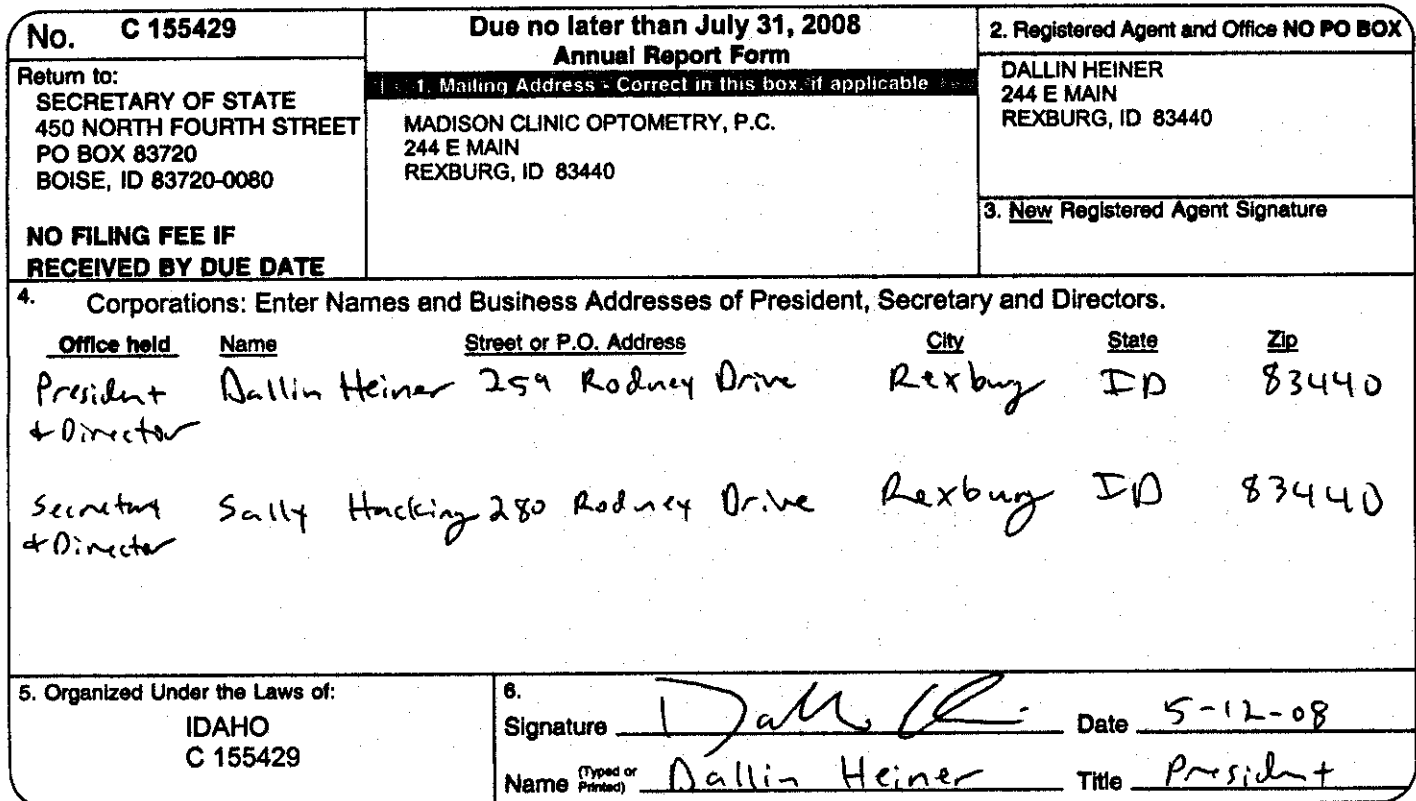 No. C 155429
Return to:
SECRETARY OF STATE
450 NORTH FOURTH STREET
PO BOX 83720
BOISE, ID 83720-0080
NO FILING FEE IF
RECEIVED BY DUE DATE
Due no later than July 31, 2008
Annual Report Form
1. Mailing Address - Correct in this box, if applicable
MADISON CLINIC OPTOMETRY, P.C.
244 E MAIN
REXBURG, ID 83440
2. Registered Agent and Office NO PO BOX
DALLIN HEINER
244 E MAIN
REXBURG, ID 83440
3. New Registered Agent Signature
4. Corporations: Enter Names and Business Addresses of President, Secretary and Directors.
Office held Name Street or P.O. Address City State Zip
President Dallin Heiner 259 Rodney Drive Rexburg ID 83440
+ Director
Secretary Sally Hacking 280 Rodney Drive Rexburg ID 83440
+ Director
5. Organized Under the Laws of:
IDAHO
C 155429
6.
Signature Date 5-12-08
Name (Typed or Printed) Dallin Heiner Title President